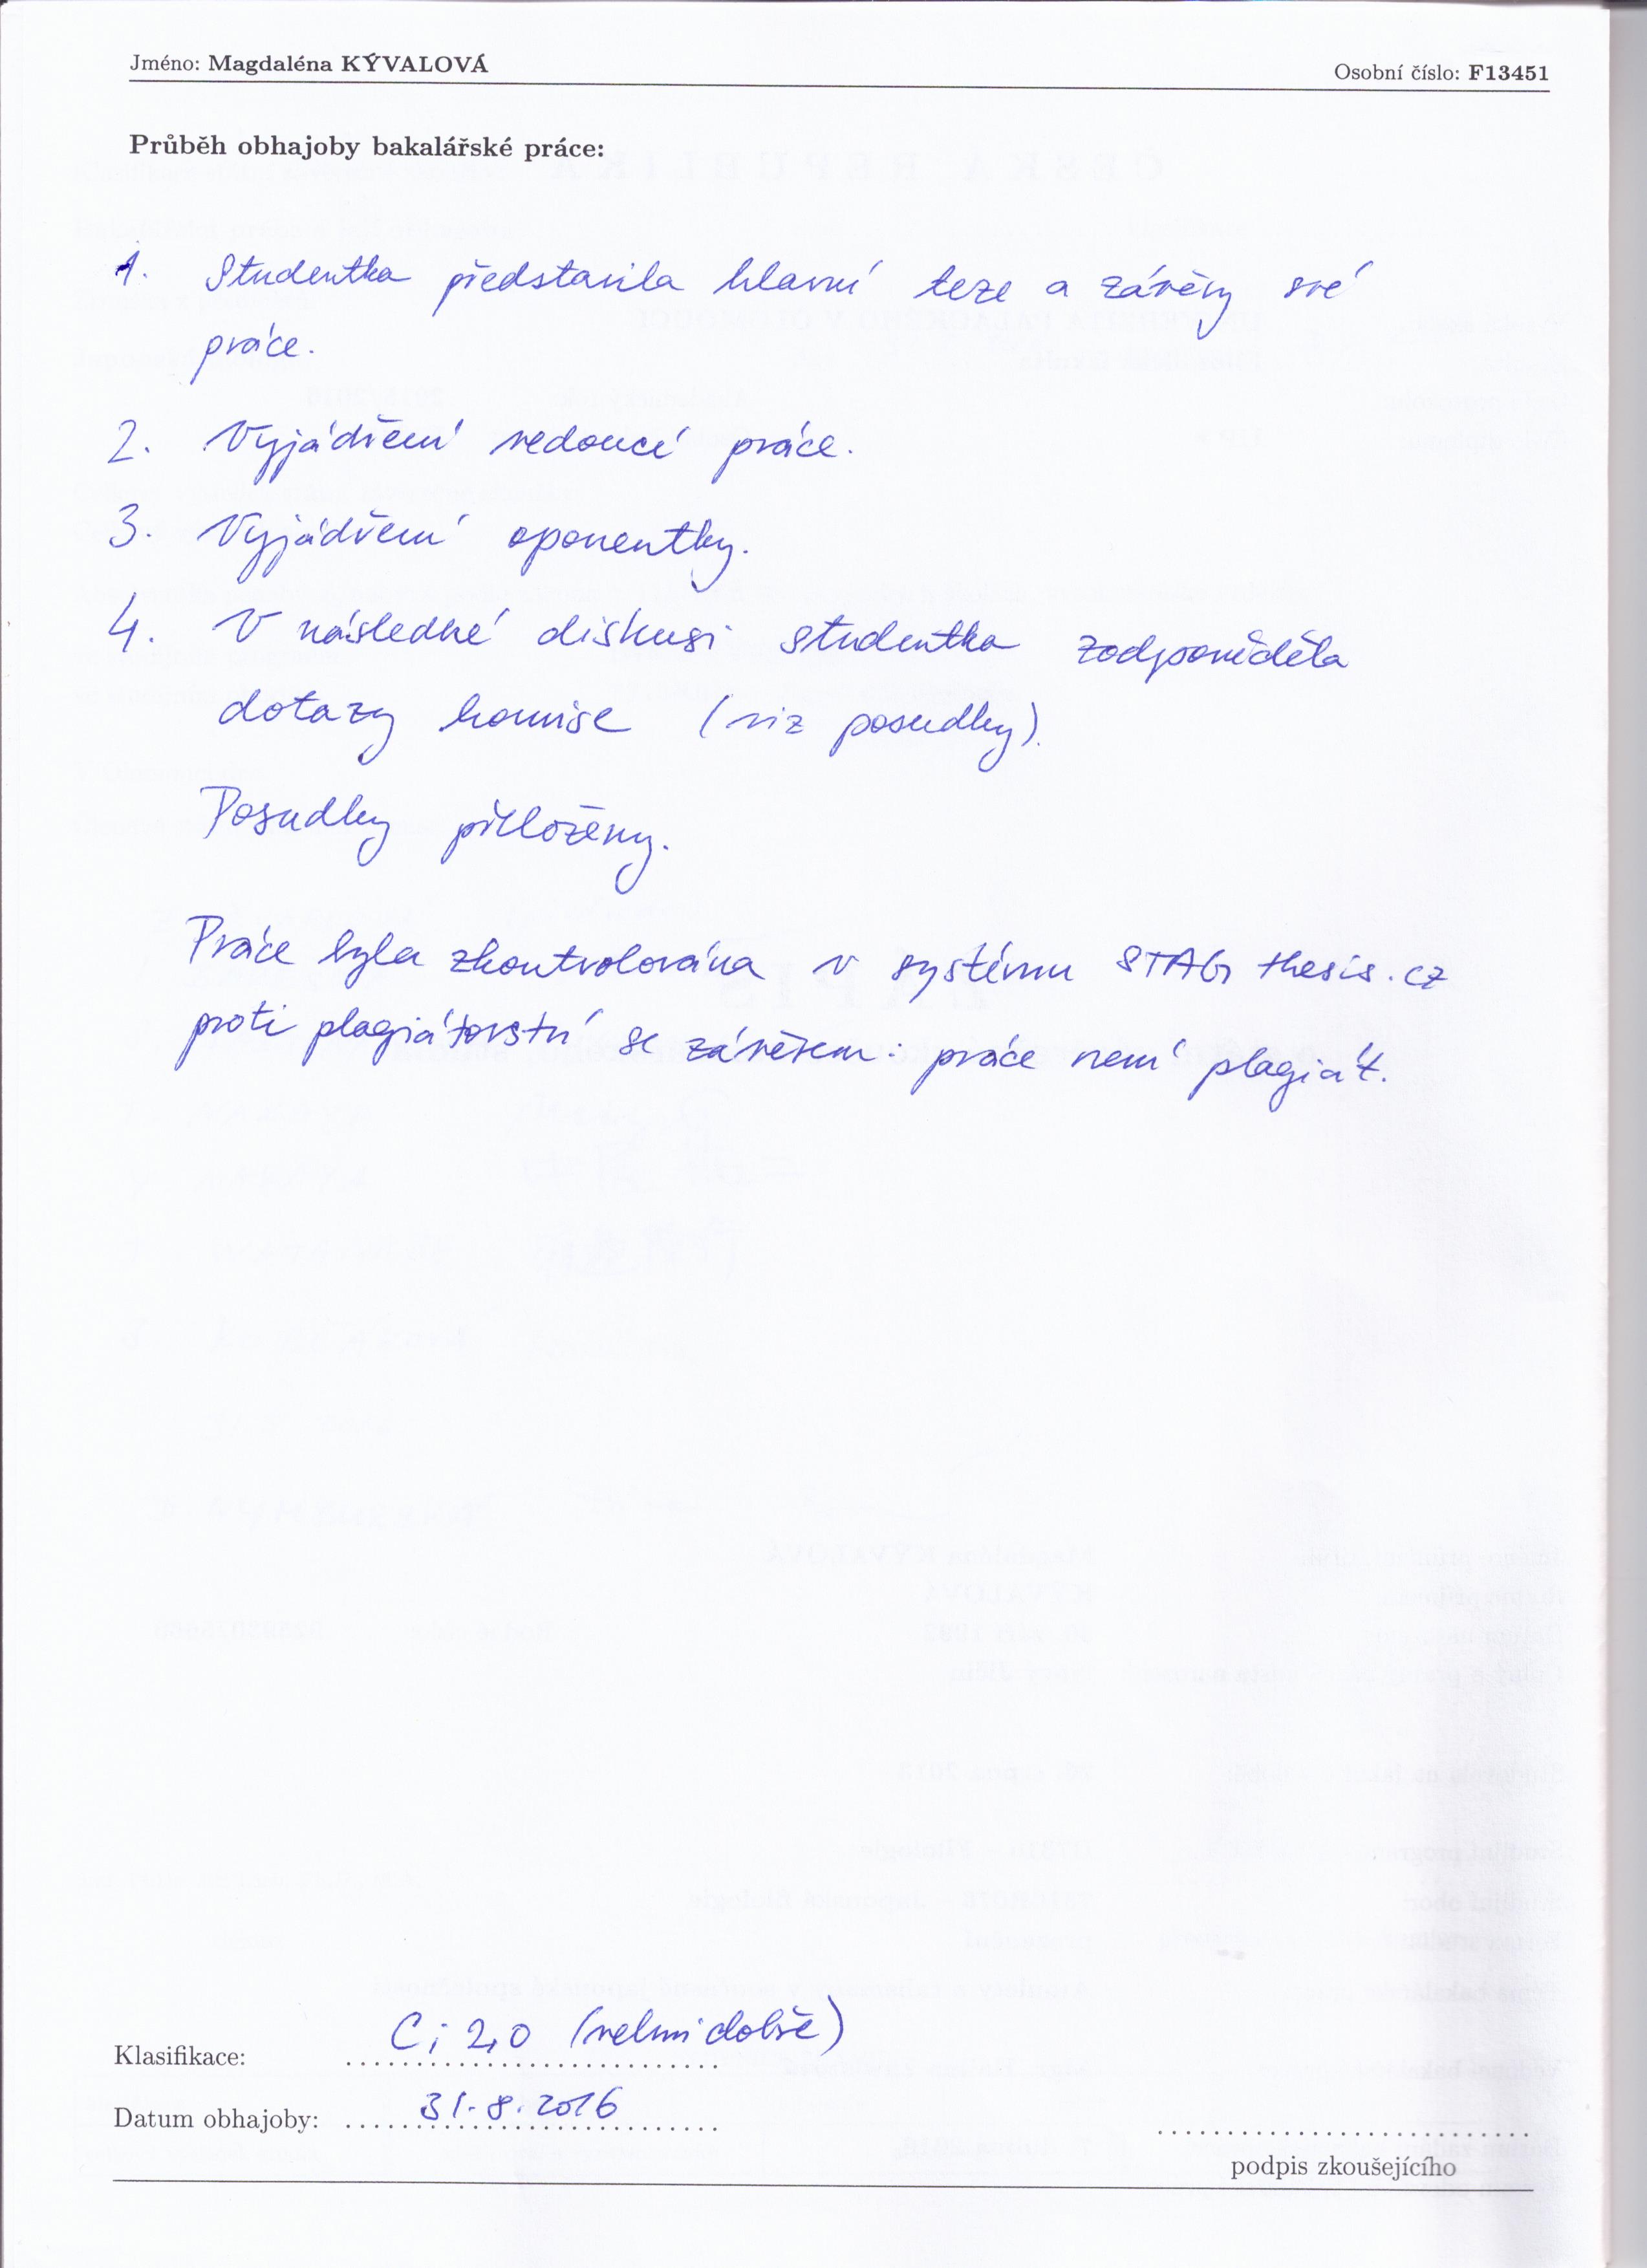 Jméno: Magdaléna KÝVALOVÁ
Osobní číslo: F13451
Průběh obhajoby bakalářské práce:
1. Studentka představila hlavní teze a závěry své
práce.
2. Vyjádření vedoucí práce.
3. Vyjádření oponentky.
4. V následné diskusi studentka zodpověděla
dotazy komise (viz posudky).
Posudky přiloženy.
Práce byla zkontrolována v systému STAG thesis.cz
proti plagiátorství se závěrem: práce není plagiát.
Klasifikace: C; 2,0 (velmi dobře)
Datum obhajoby: 31.8.2016
podpis zkoušejícího